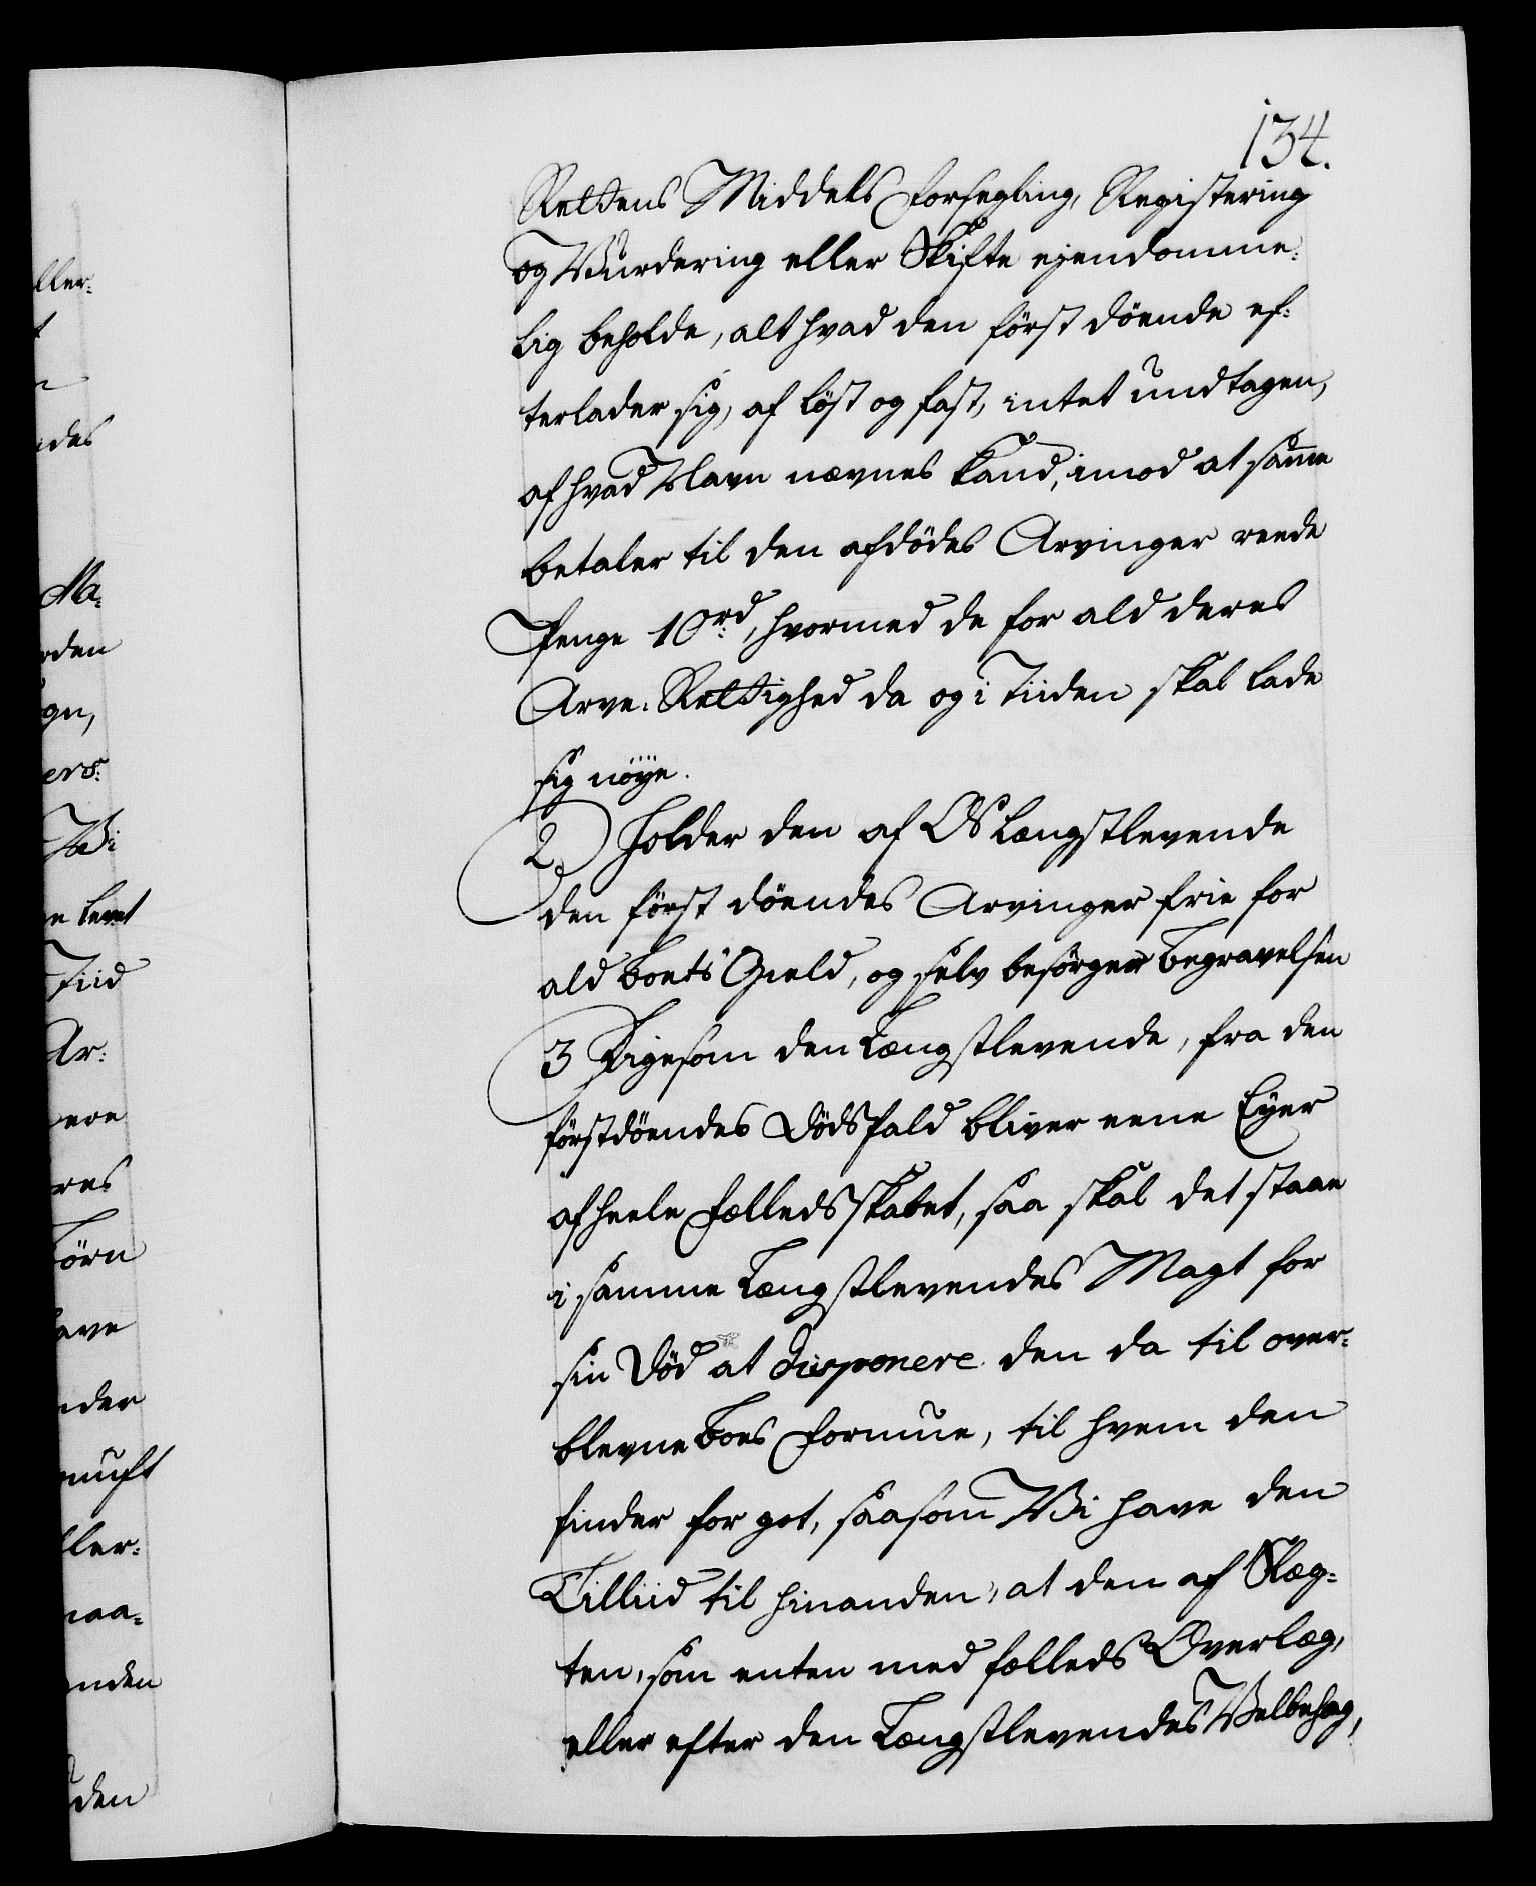 134.
Rettens Middels Forsegling, Registering
og Wurdering eller Skifte ejendomme-
lig beholde, alt hvad den först döende ef-
terlader sig, af löst og fast, intet undtagen,
af hvad Navn nævnes kand, imod at samme
betaler til den afdödes Arvinger reede
Penge 10rd, hvormed de for ald deres
Arve-Rettighed da og i Tiiden skal lade
sig nöÿe.
2) Holder den af Os Længstlevende
den först döendes Arvinger frie for
ald Boets Gield, og selv besörger Begravelsen
3 Ligesom den Længstlevende, fra den
förstdöendes Dödsfald bliver eene Eyer
af heele Fælledsskabet, saa skal det staae
i samme Længstlevendes Magt for
sin Död at disponere den da til over-
blevne Boes Formue, til hvem den
finder for got, saasom Wi have den
Tilliid til hinanden, at den af Slæg-
ten, som enten med fælleds Overlæg,
eller efter den Længstlevendes Velbehag,
ller-
t
n
ides
Ma-
rden
gn,
ers-
Wi
e levet
Tiid
Ar-
ere
res
Börn
have
nder
nuft
ller-
naa-
nden
den